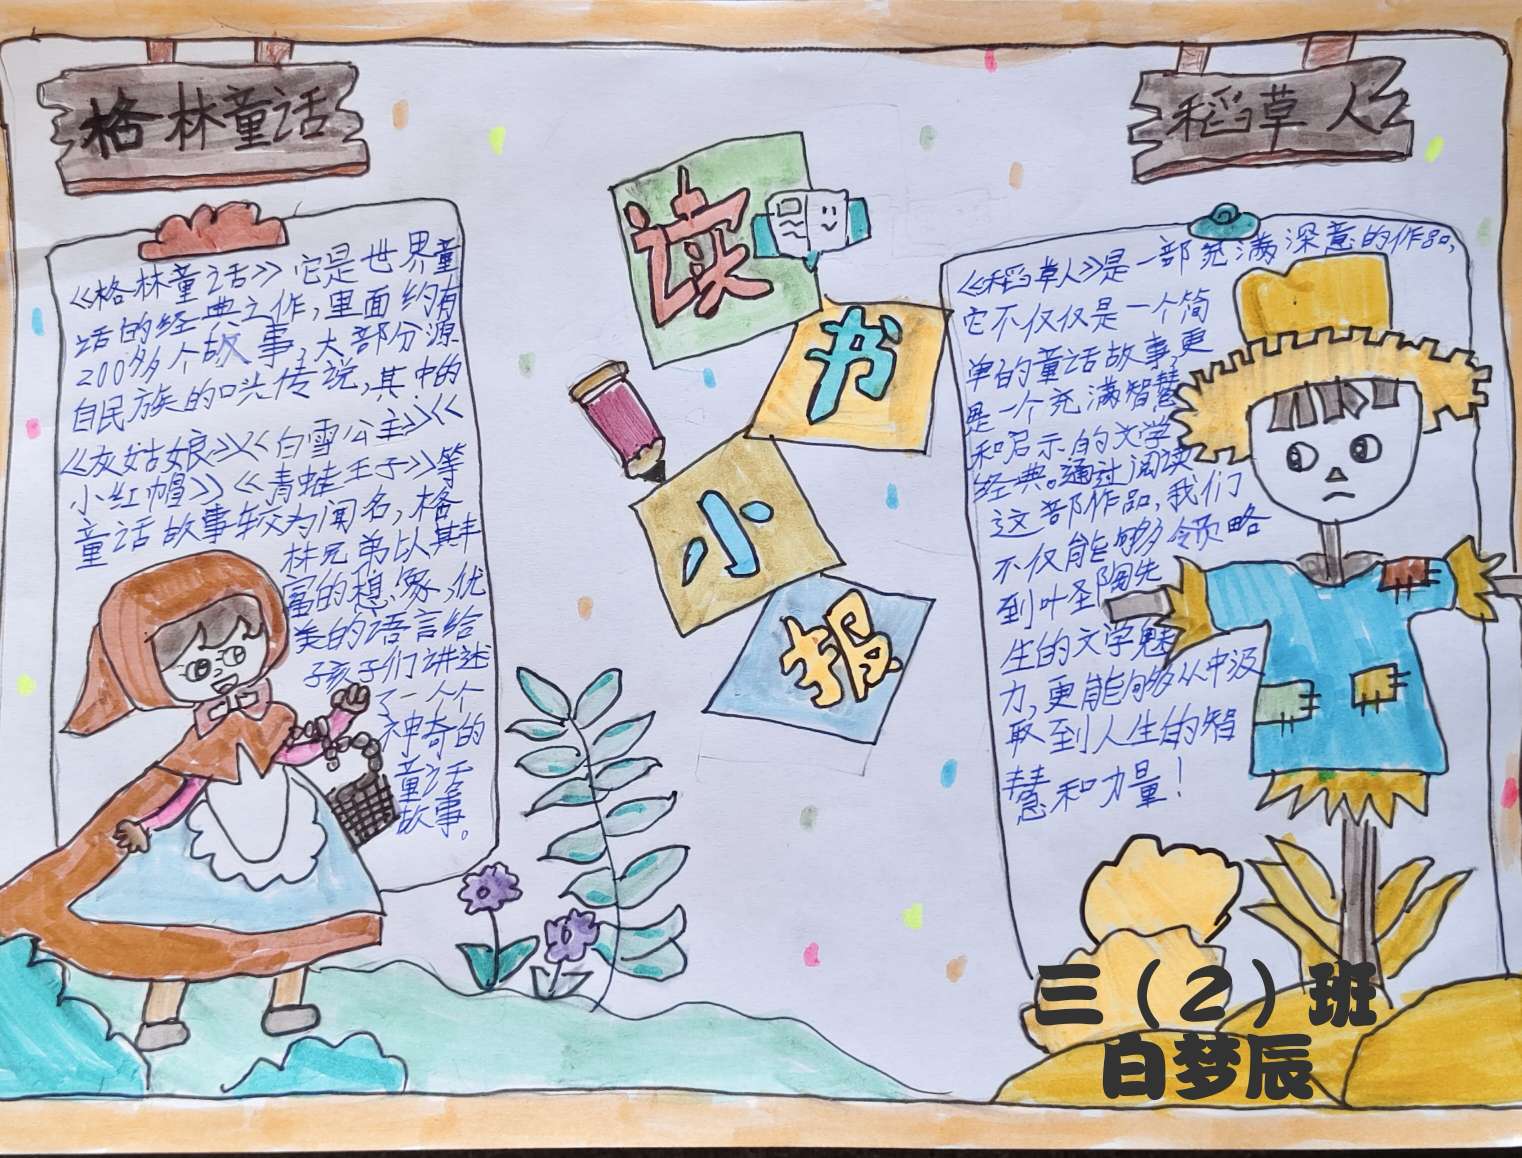 格林童话
《格林童话》它是世界童
话的经典之作,里面约有
200多个故事,大部分源
自民族的口头传说,其中的
《灰姑娘》《白雪公主》《
小红帽》《青蛙王子》等
童话故事较为闻名,格
林兄弟以其丰
富的想象,优
美的语言给
孩子们讲述
了一个个
神奇的
童话
故事。
读
书
小
报
稻草人
《稻草人》是一部充满深意的作品,
它不仅仅是一个简
单的童话故事,更
是一个充满智慧
和启示的文学
经典。通过阅读
这部作品,我们
不仅能够领略
到叶圣陶先
生的文学魅
力,更能够从中汲
取到人生的智
慧和力量!
三（2）班
白梦辰